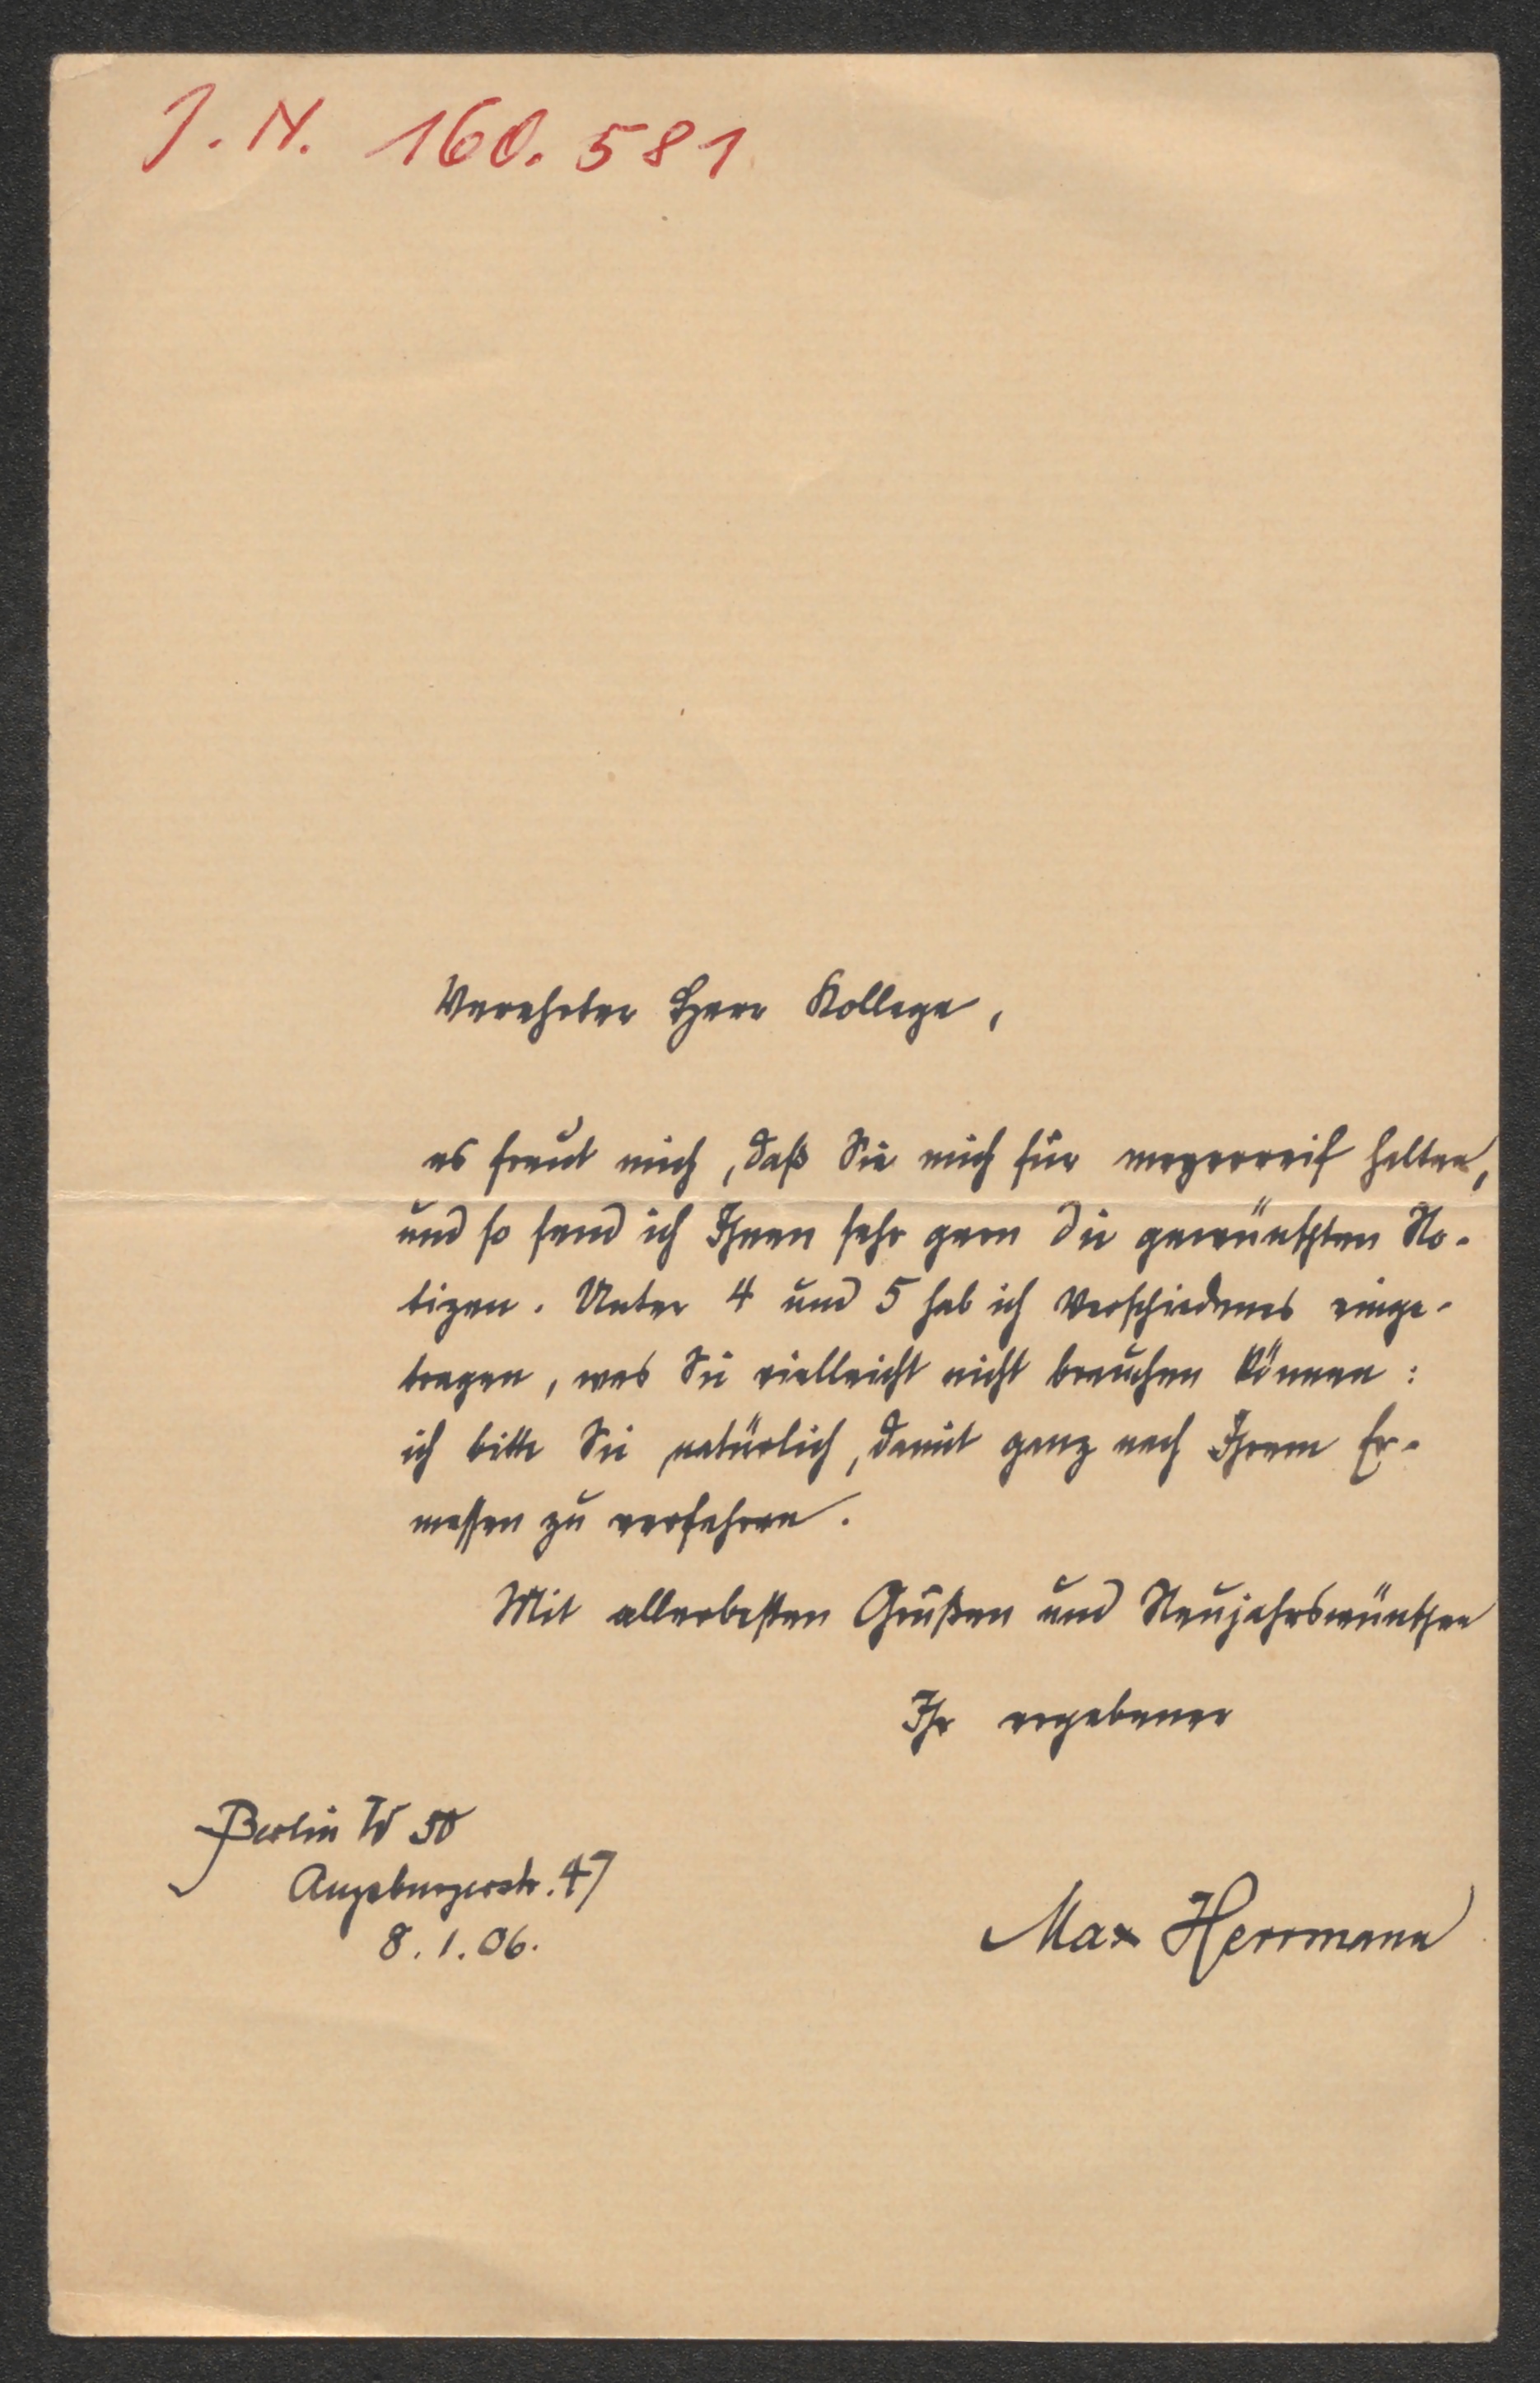 J. N. 160.581
Verehrter Herr Kollege,
es freut mich, daß Sie mich für meyerreif halten,
und so send ich Ihnen sehr gern die gewünschten No-
tizen. Unter 4 und 5 hab ich Verschiedenes einge-
tragen, was Sie vielleicht nicht brauchen können:
ich bitte Sie natürlich, damit ganz nach Ihrem Er-
messen zu verfahren.
Mit allerbesten Grüßen und Neujahrswünschen
Ihr ergebener
Berlin W 50
Augsburgerstr. 47
8. 1. 06.
Max Herrmann